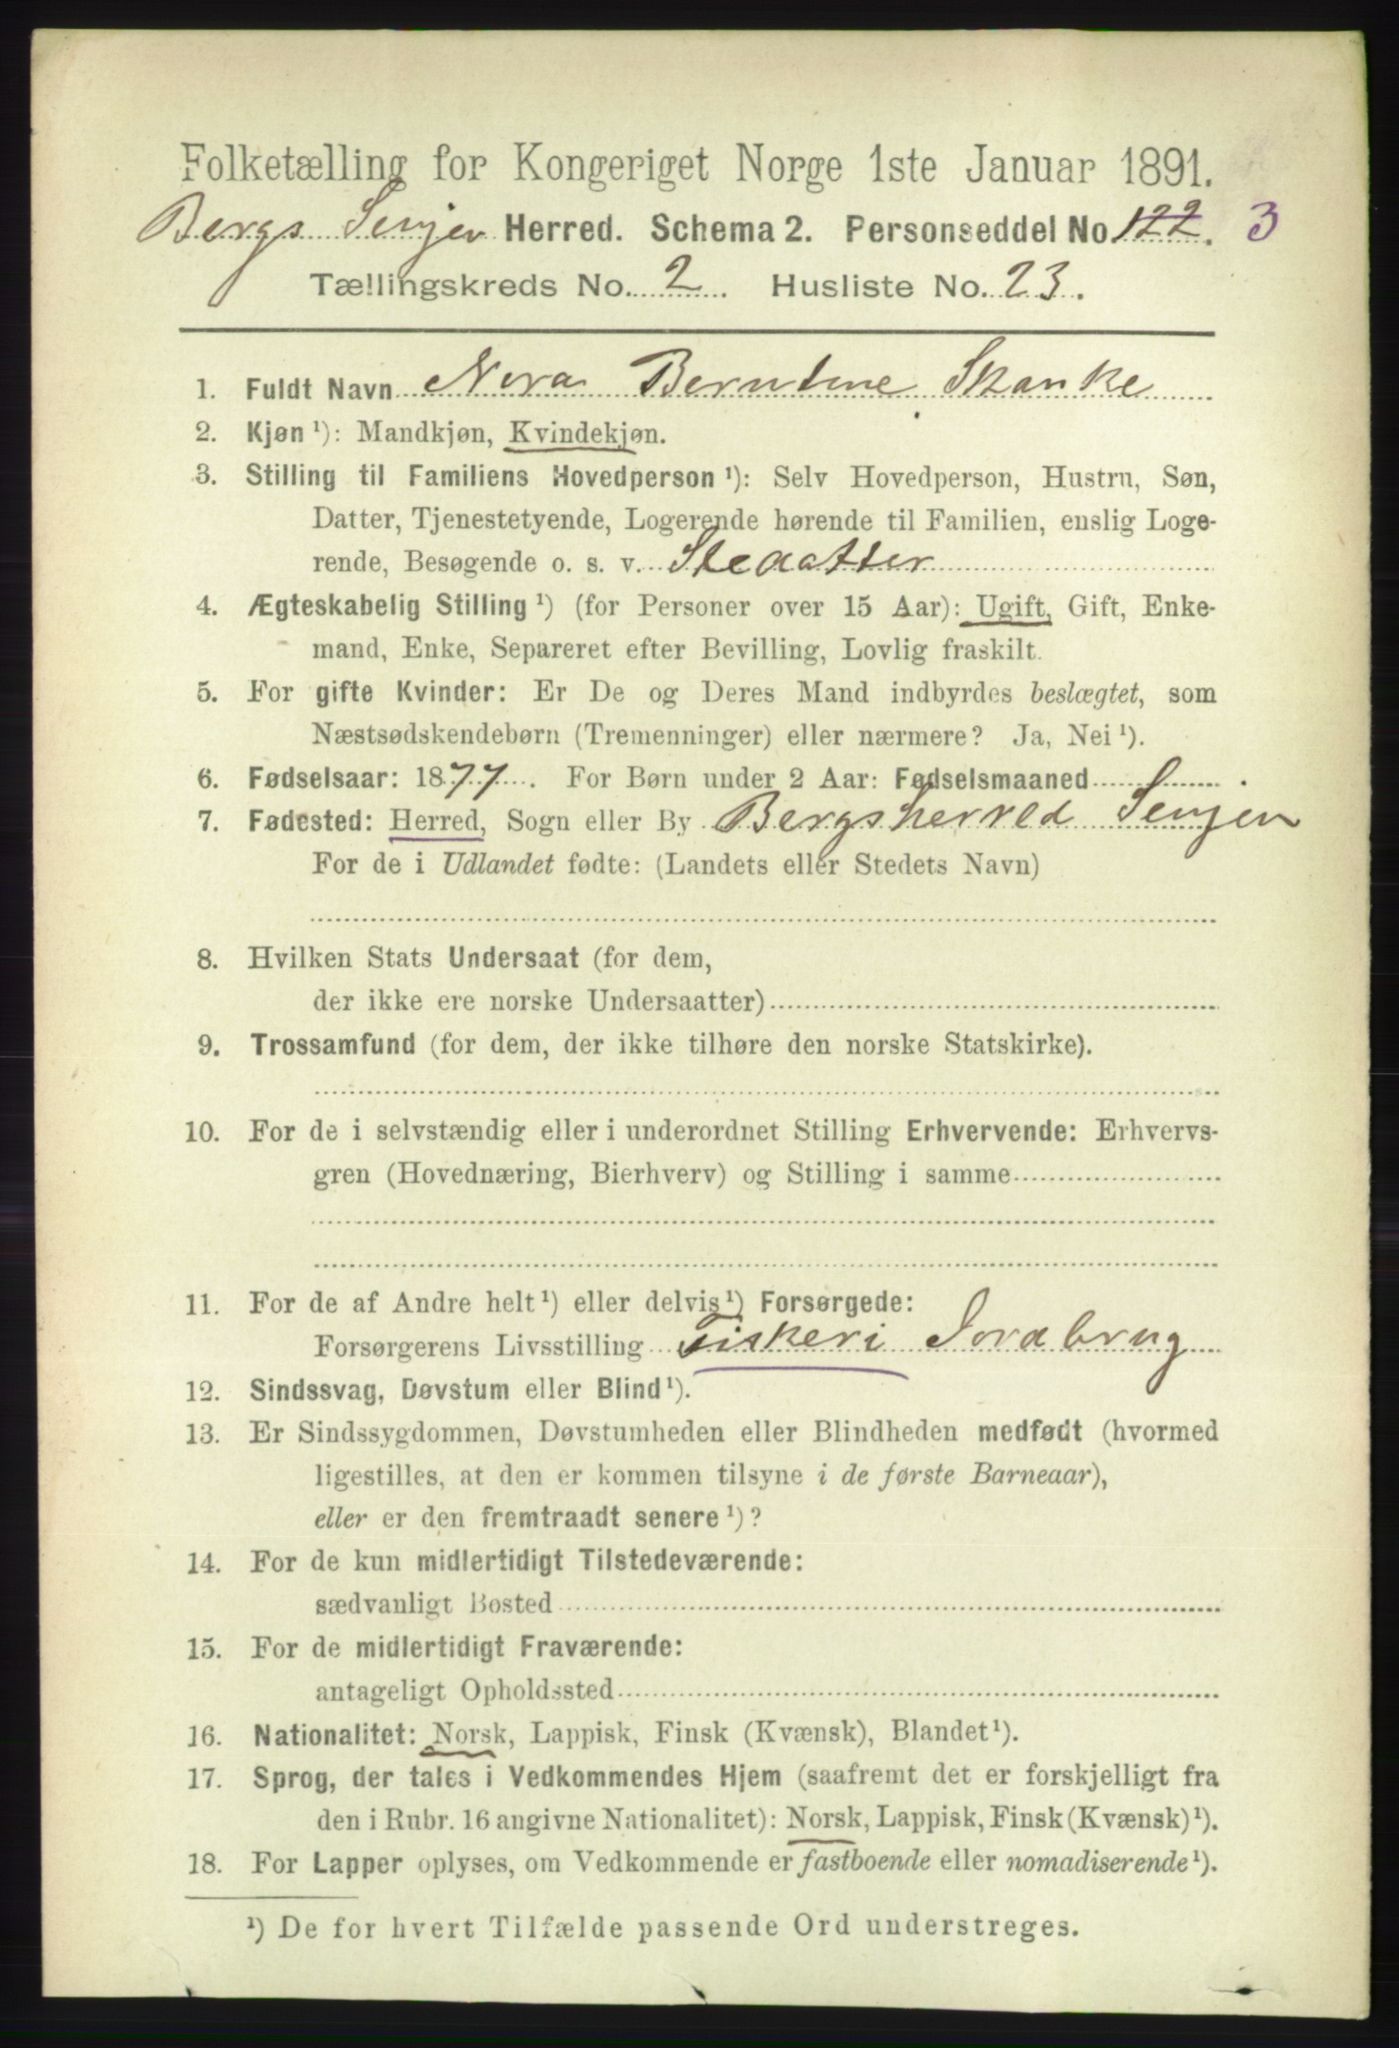 Folketælling for Kongeriget Norge 1ste Januar 1891.
Bergs Senjen Herred. Schema 2. Personseddel No. 122. 3
Tællingskreds No. 2. Husliste No. 23.
1. Fuldt Navn Nora Berntine Skanke
2. Kjøn ¹): Mandkjøn, Kvindekjøn.
3. Stilling til Familiens Hovedperson ¹): Selv Hovedperson, Hustru, Søn,
Datter, Tjenestetyende, Logerende hørende til Familien, enslig Loge-
rende, Besøgende o. s. v. Stedatter
4. Ægteskabelig Stilling ¹) (for Personer over 15 Aar): Ugift, Gift, Enke-
mand, Enke, Separeret efter Bevilling, Lovlig fraskilt.
5. For gifte Kvinder: Er De og Deres Mand indbyrdes beslægtet, som
Næstsødskendebørn (Tremenninger) eller nærmere? Ja, Nei ¹).
6. Fødselsaar: 1877. For Børn under 2 Aar: Fødselsmaaned
7. Fødested: Herred, Sogn eller By Bergsherred Senjen
For de i Udlandet fødte: (Landets eller Stedets Navn)
8. Hvilken Stats Undersaat (for dem,
der ikke ere norske Undersaatter)
9. Trossamfund (for dem, der ikke tilhøre den norske Statskirke).
10. For de i selvstændig eller i underordnet Stilling Erhvervende: Erhvervs-
gren (Hovednæring, Bierhverv) og Stilling i samme
11. For de af Andre helt ¹) eller delvis ¹) Forsørgede:
Forsørgerens Livsstilling Fiskeri Jordbrug
12. Sindssvag, Døvstum eller Blind ¹).
13. Er Sindssygdommen, Døvstumheden eller Blindheden medfødt (hvormed
ligestilles, at den er kommen tilsyne i de første Barneaar),
eller er den fremtraadt senere ¹)?
14. For de kun midlertidigt Tilstedeværende:
sædvanligt Bosted
15. For de midlertidigt Fraværende:
antageligt Opholdssted
16. Nationalitet: Norsk, Lappisk, Finsk (Kvænsk), Blandet ¹).
17. Sprog, der tales i Vedkommendes Hjem (saafremt det er forskjelligt fra
den i Rubr. 16 angivne Nationalitet): Norsk, Lappisk, Finsk (Kvænsk) ¹).
18. For Lapper oplyses, om Vedkommende er fastboende eller nomadiserende ¹).
¹) De for hvert Tilfælde passende Ord understreges.